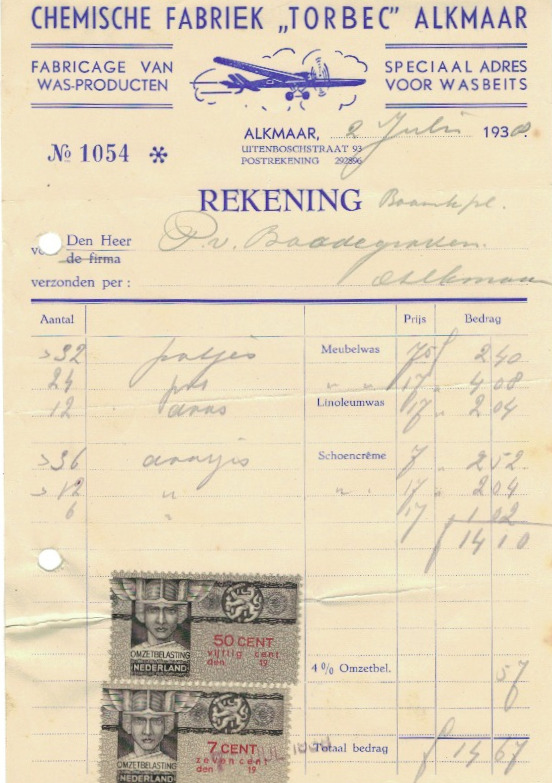 CHEMISCHE FABRIEK „TORBEC" ALKMAAR
FABRICAGE VAN
WAS-PRODUCTEN
SPECIAAL ADRES
VOOR WASBEITS
ALKMAAR, 2 Juli 1938.
UITENBOSCHSTRAAT 93
POSTREKENING 292896
№ 1054
REKENING
Den Heer P. v. Bodegraven.
de firma
verzonden per : Alkmaar
Aantal Prijs Bedrag
32 potjes Meubelwas 7,5 2 40
24 pot " " 17 " 4 08
12 doos Linoleumwas 17 " 2 04
36 doosjes Schoencrême 7 " 2 52
12 " " " 17 " 2 04
6 " 17 1 02
14 10
50 CENT
vijftig cent
den 19
OMZETBELASTING
NEDERLAND
4% Omzetbel. 57
7 CENT
zeven cent
den 19
OMZETBELASTING
NEDERLAND
Totaal bedrag f 14 67